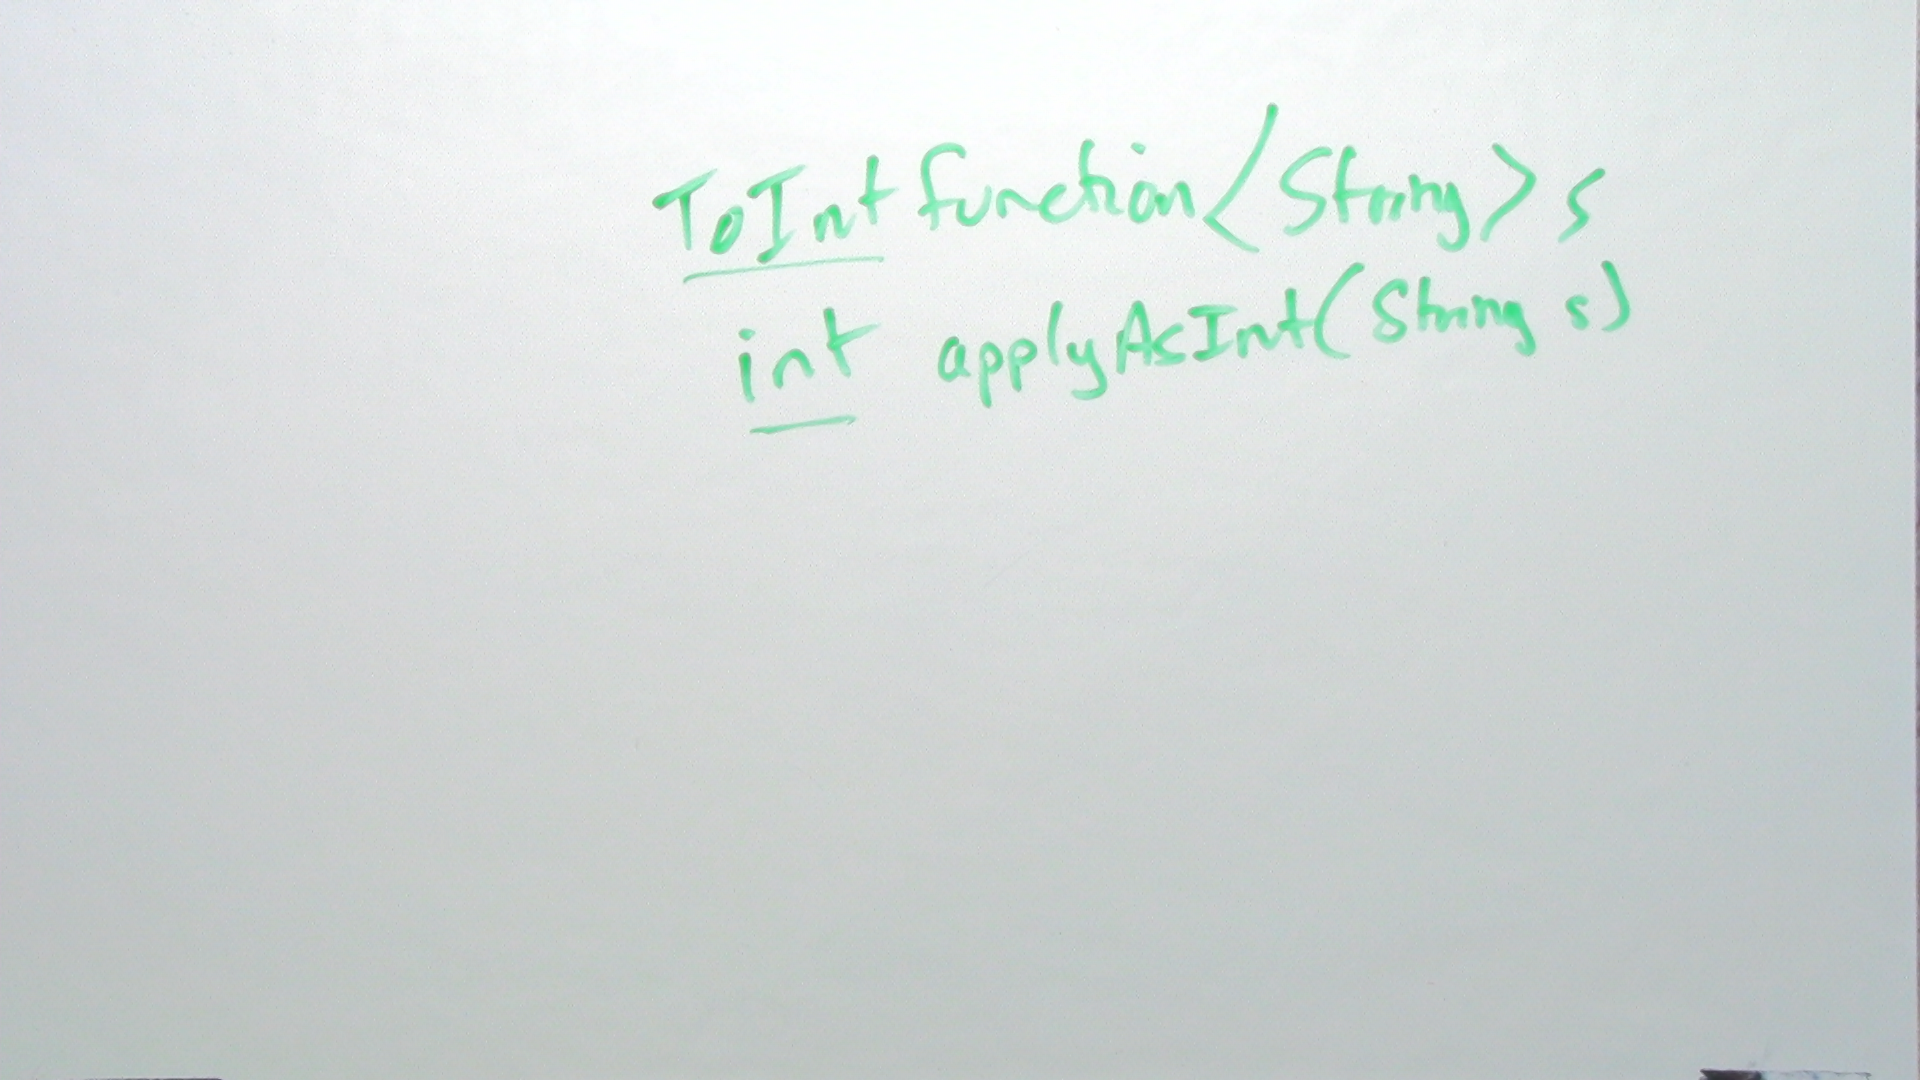 ToIntFunction<String> s
int applyAsInt(String s)